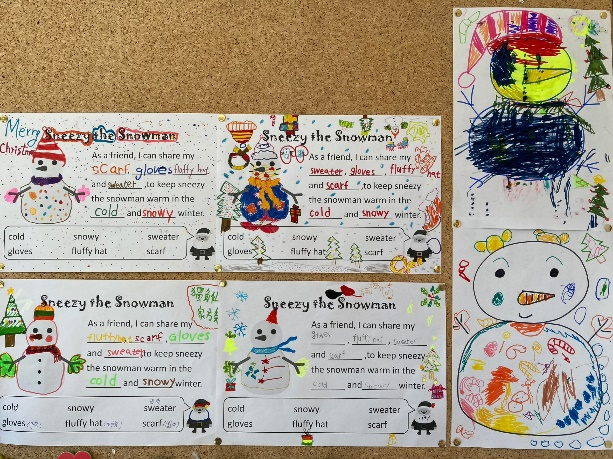 Merry
Christmas
Sneezy the Snowman
As a friend, I can share my
scarf gloves fluffy hat
and sweater ,to keep sneezy
the snowman warm in the
cold and snowy winter.
cold snowy sweater
gloves fluffy hat scarf
Sneezy the Snowman
As a friend, I can share my
sweater, gloves fluffy hat
and scarf ,to keep sneezy
the snowman warm in the
cold and snowy winter.
cold snowy sweater
gloves fluffy hat scarf
Sneezy the Snowman
As a friend, I can share my
fluffy hat scarf, gloves
and sweater,to keep sneezy
the snowman warm in the
cold and snowy winter.
cold snowy sweater
gloves fluffy hat scarf
Sneezy the Snowman
As a friend, I can share my
, fluffy hat, sweater
and scarf ,to keep sneezy
the snowman warm in the
cold and snowy winter.
cold snowy sweater
gloves fluffy hat scarf